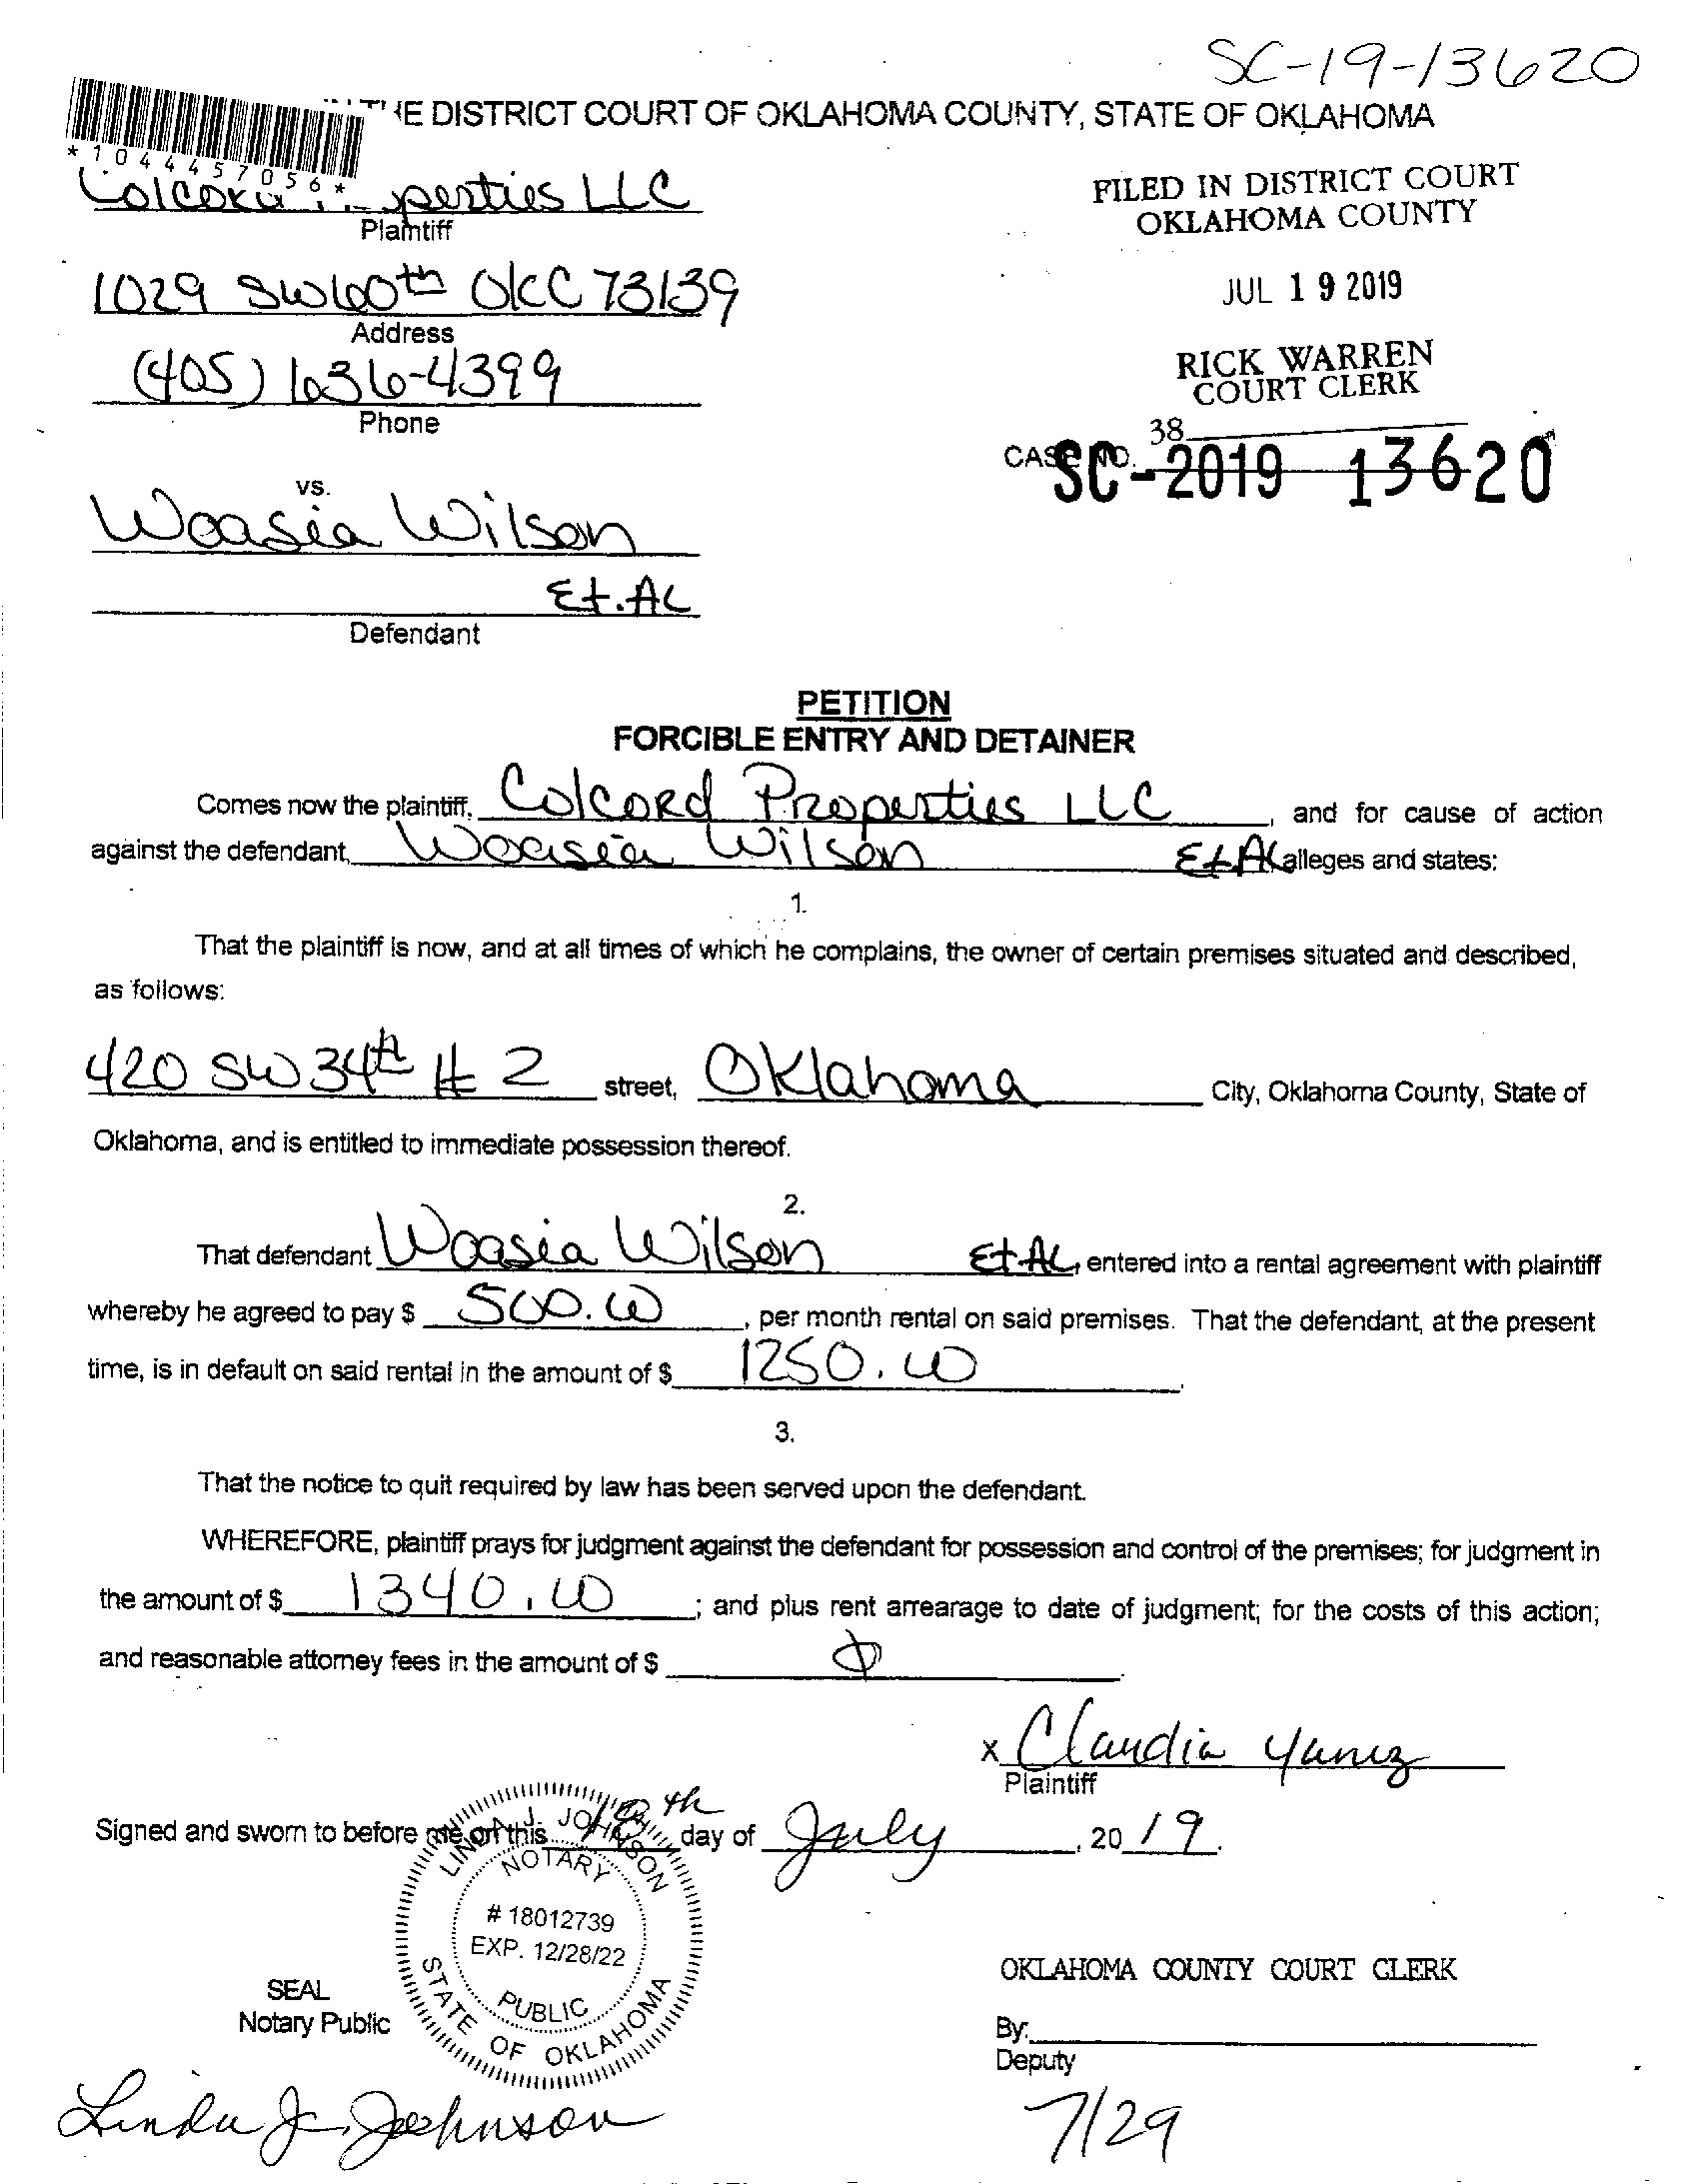 SC-19-13620
THE DISTRICT COURT OF OKLAHOMA COUNTY, STATE OF OKLAHOMA
*1044457056*
Colcord perties LLC
Plaintiff
FILED IN DISTRICT COURT
OKLAHOMA COUNTY
1029 SW 60th OKC 73139
Address
JUL 19 2019
(405) 636-4399
Phone
RICK WARREN
COURT CLERK
38
CASE NO. SC-2019 13620
vs.
Woasia Wilson
Et.AL
Defendant
PETITION
FORCIBLE ENTRY AND DETAINER
Comes now the plaintiff, Colcord Properties LLC, and for cause of action
against the defendant, Woasia Wilson Et AL alleges and states:
1.
That the plaintiff is now, and at all times of which he complains, the owner of certain premises situated and described,
as follows:
420 SW 34th # 2 street, Oklahoma City, Oklahoma County, State of
Oklahoma, and is entitled to immediate possession thereof.
2.
That defendant Woasia Wilson Et AL, entered into a rental agreement with plaintiff
whereby he agreed to pay $ 500.00, per month rental on said premises. That the defendant, at the present
time, is in default on said rental in the amount of $ 1250.00.
3.
That the notice to quit required by law has been served upon the defendant.
WHEREFORE, plaintiff prays for judgment against the defendant for possession and control of the premises; for judgment in
the amount of $ 1340.00; and plus rent arrearage to date of judgment; for the costs of this action;
and reasonable attorney fees in the amount of $ 0.
x Claudia Yanez
Plaintiff
Signed and sworn to before me on this 18th day of July, 2019.
LINDA J. JOHNSON
NOTARY
# 18012739
EXP. 12/28/22
PUBLIC
STATE OF OKLAHOMA
SEAL
Notary Public
OKLAHOMA COUNTY COURT CLERK
By:
Deputy
Linda J. Johnson
7/29